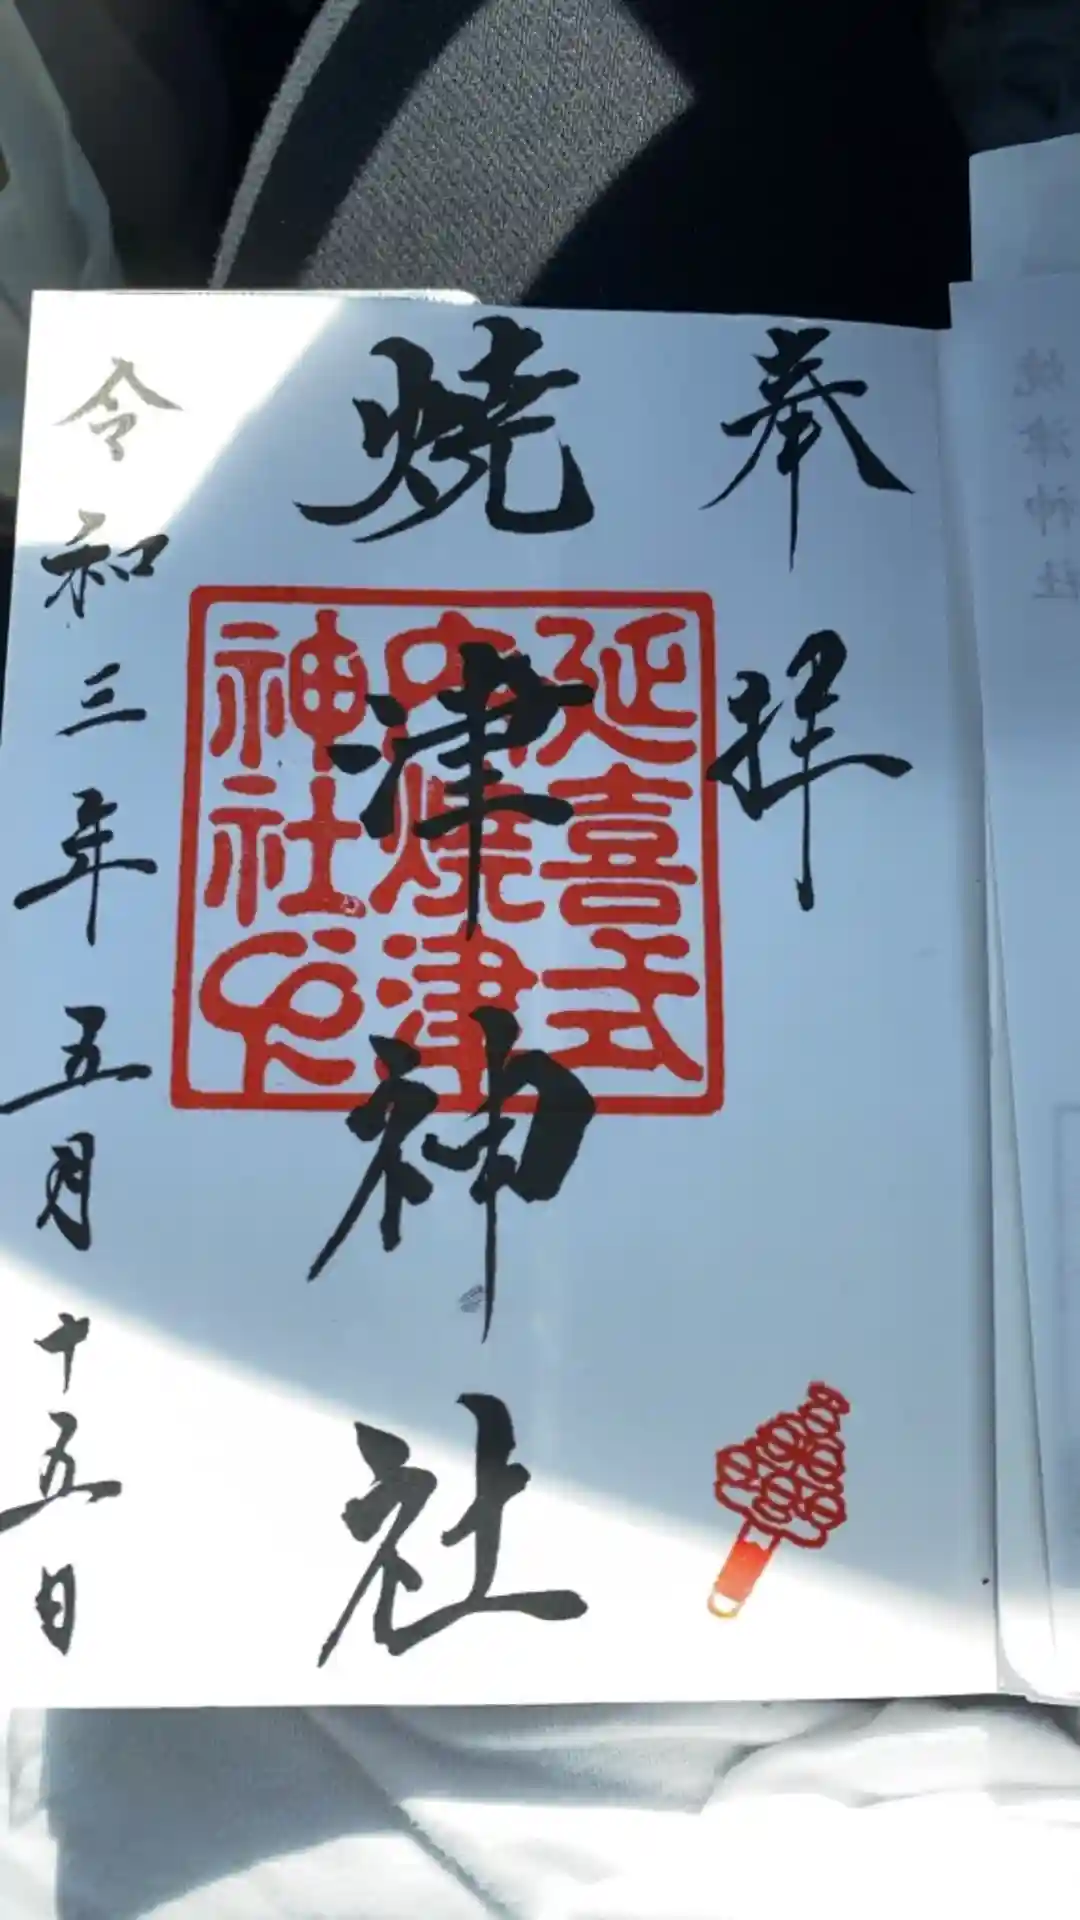 奉拝
焼津神社
延喜式
内焼津
神社印
令和三年五月十五日
焼津神社